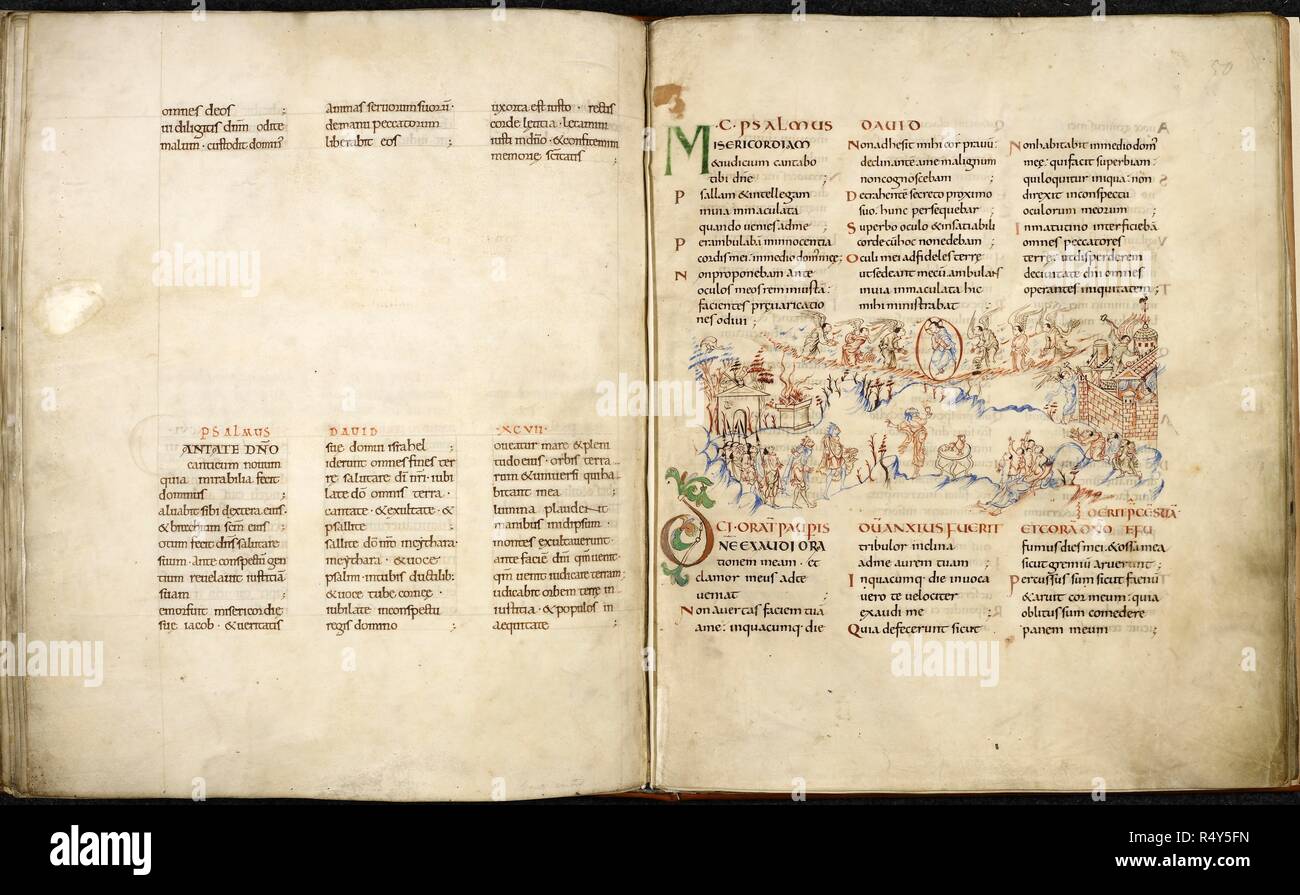 omnes deos ;
ui diligitis dnm odite
malum · custodit domin'
animas seruorum suorū ·
de manu peccatorum
liberabit eos ;
ux orta est iusto · rectis
corde letitia · letamini
iusti in dno · & confitemini
memorie scitatis ;
· PSALMUS DAUID · XCVII ·
ANTATE DNO
canticum nouum
quia mirabilia fecit
dominus ;
aluabit sibi dextera eius ·
& brachium scm eius ;
otum fecit dns salutare
suum · ante conspectu gen
tium reuelauit iusticia
suam ;
emoratus misericordie
sue iacob · & ueritatis
sue domui israhel ;
iderunt omnes fines ter
re salutare di nri · iubi
late do omnis terra ·
cantate · & exultate · &
psallite ;
sallite dno in cythara ·
in cythara · & uoce
psalmi · in tubis ductilib:
& uoce tube corneę ·
iubilate in conspectu
regis domino ;
oueatur mare & pleni
tudo eius · orbis terra
rum & uniuersi qui ha
bitant in ea ;
lumina plaudent
manibus in id ipsum ·
montes exultauerunt ·
ante facie dni qm uenit ·
qm uenit iudicare terram ;
udicabit orbem terre in
iustitia · & populos in
aequitate ;
50
· C · PSALMUS DAUID
MISERICORDIAM
& iudicium cantabo
tibi dne ;
Psallam & intellegam
in uia inmaculata
quando uenies ad me ;
Perambulabā in innocentia
cordis mei · in medio dom' meę ;
Non proponebam ante
oculos meos rem iniustā :
facientes preuaricatio
nes odiui ;
Non adhesit mihi cor prauū :
declinante a me malignum
non cognoscebam ;
Detrahentē secreto proximo
suo · hunc persequebar ;
Superbo oculo & insatiabili
corde cū hoc non edebam ;
Oculi mei ad fideles terrę
ut sedeant mecū ambulans
in uia inmaculata hic
mihi ministrabat ;
Non habitabit in medio dom'
meę · qui facit superbiam :
qui loquitur iniqua · non
direxit in conspectu
oculorum meorum ;
In matutino interficiebā
omnes peccatores
terrę · ut disperderem
de ciuitate dni omnes
operantes iniquitatem ;
· CI · ORAT PAUPIS CU ANXIUS FUERIT ET CORĀ DNO EFU
DERIT PCES SUĀ
DNE EXAUDI ORA
tionem meam · et
clamor meus ad te
ueniat ;
Non auertas faciem tuā
a me : in quacumq · die
tribulor inclina
ad me aurem tuam ;
In quacumq · die inuoca
uero te uelociter
exaudi me ;
Quia defecerunt sicut
fumus dies mei · & ossa mea
sicut gremiū aruerunt ;
Percussus sum sicut faenū
& aruit cor meum : quia
oblitus sum comedere
panem meum ;
alamy
Image ID: R4Y5FN
www.alamy.com